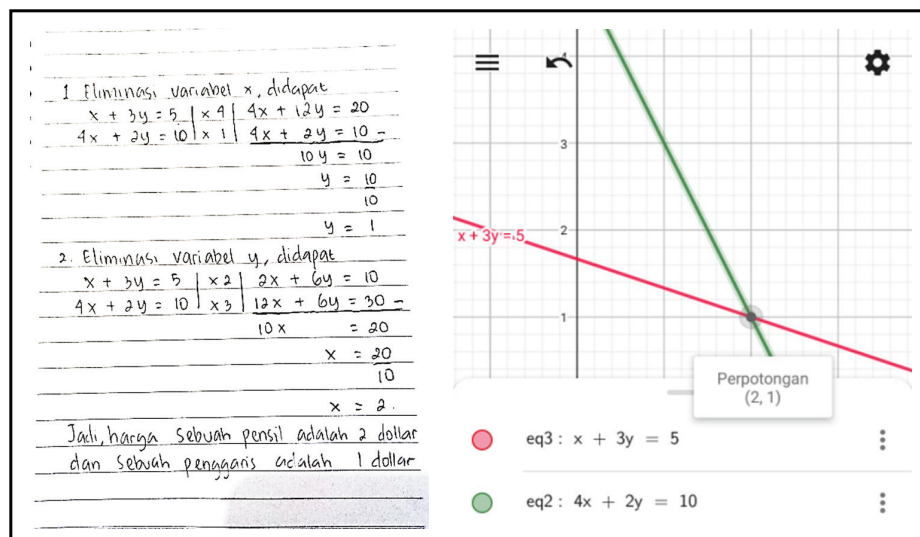 1 Eliminasi variabel x, didapat
x + 3y = 5 | x 4 | 4x + 12y = 20
4x + 2y = 10 | x 1 | 4x + 2y = 10 -
10y = 10
y = 10
10
y = 1
2. Eliminasi variabel y, didapat
x + 3y = 5 | x 2 | 2x + 6y = 10
4x + 2y = 10 | x 3 | 12x + 6y = 30 -
10x = 20
x = 20
10
x = 2.
Jadi, harga sebuah pensil adalah 2 dollar
dan sebuah penggaris adalah 1 dollar
4
3
2
1
x + 3y = 5
Perpotongan
(2, 1)
eq3 : x + 3y = 5
eq2 : 4x + 2y = 10